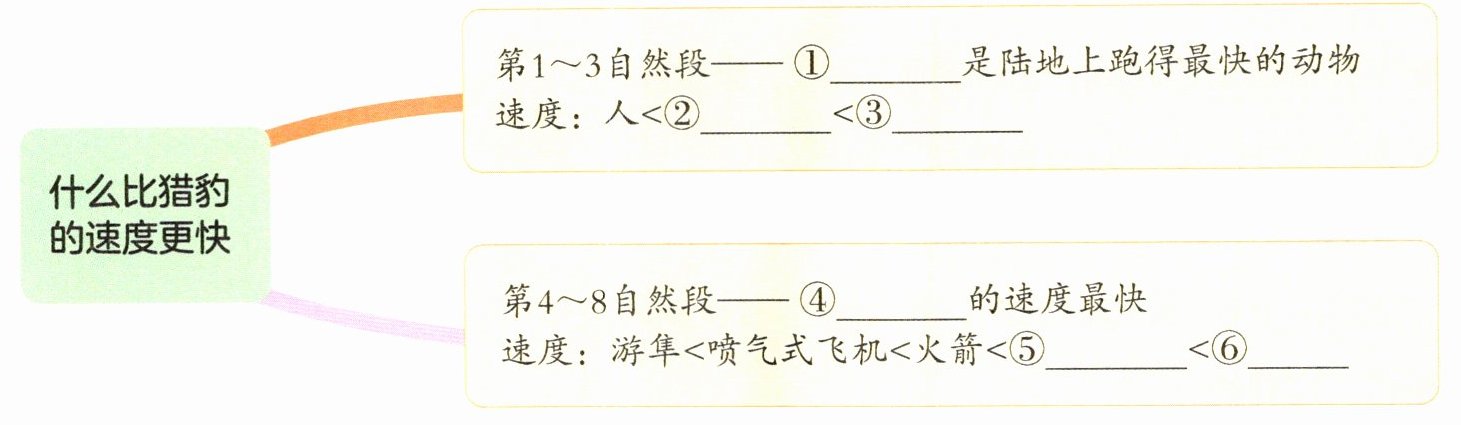 什么比猎豹
的速度更快
第1～3自然段——①________是陆地上跑得最快的动物
速度：人<②________<③________
第4～8自然段——④________的速度最快
速度：游隼<喷气式飞机<火箭<⑤________<⑥______